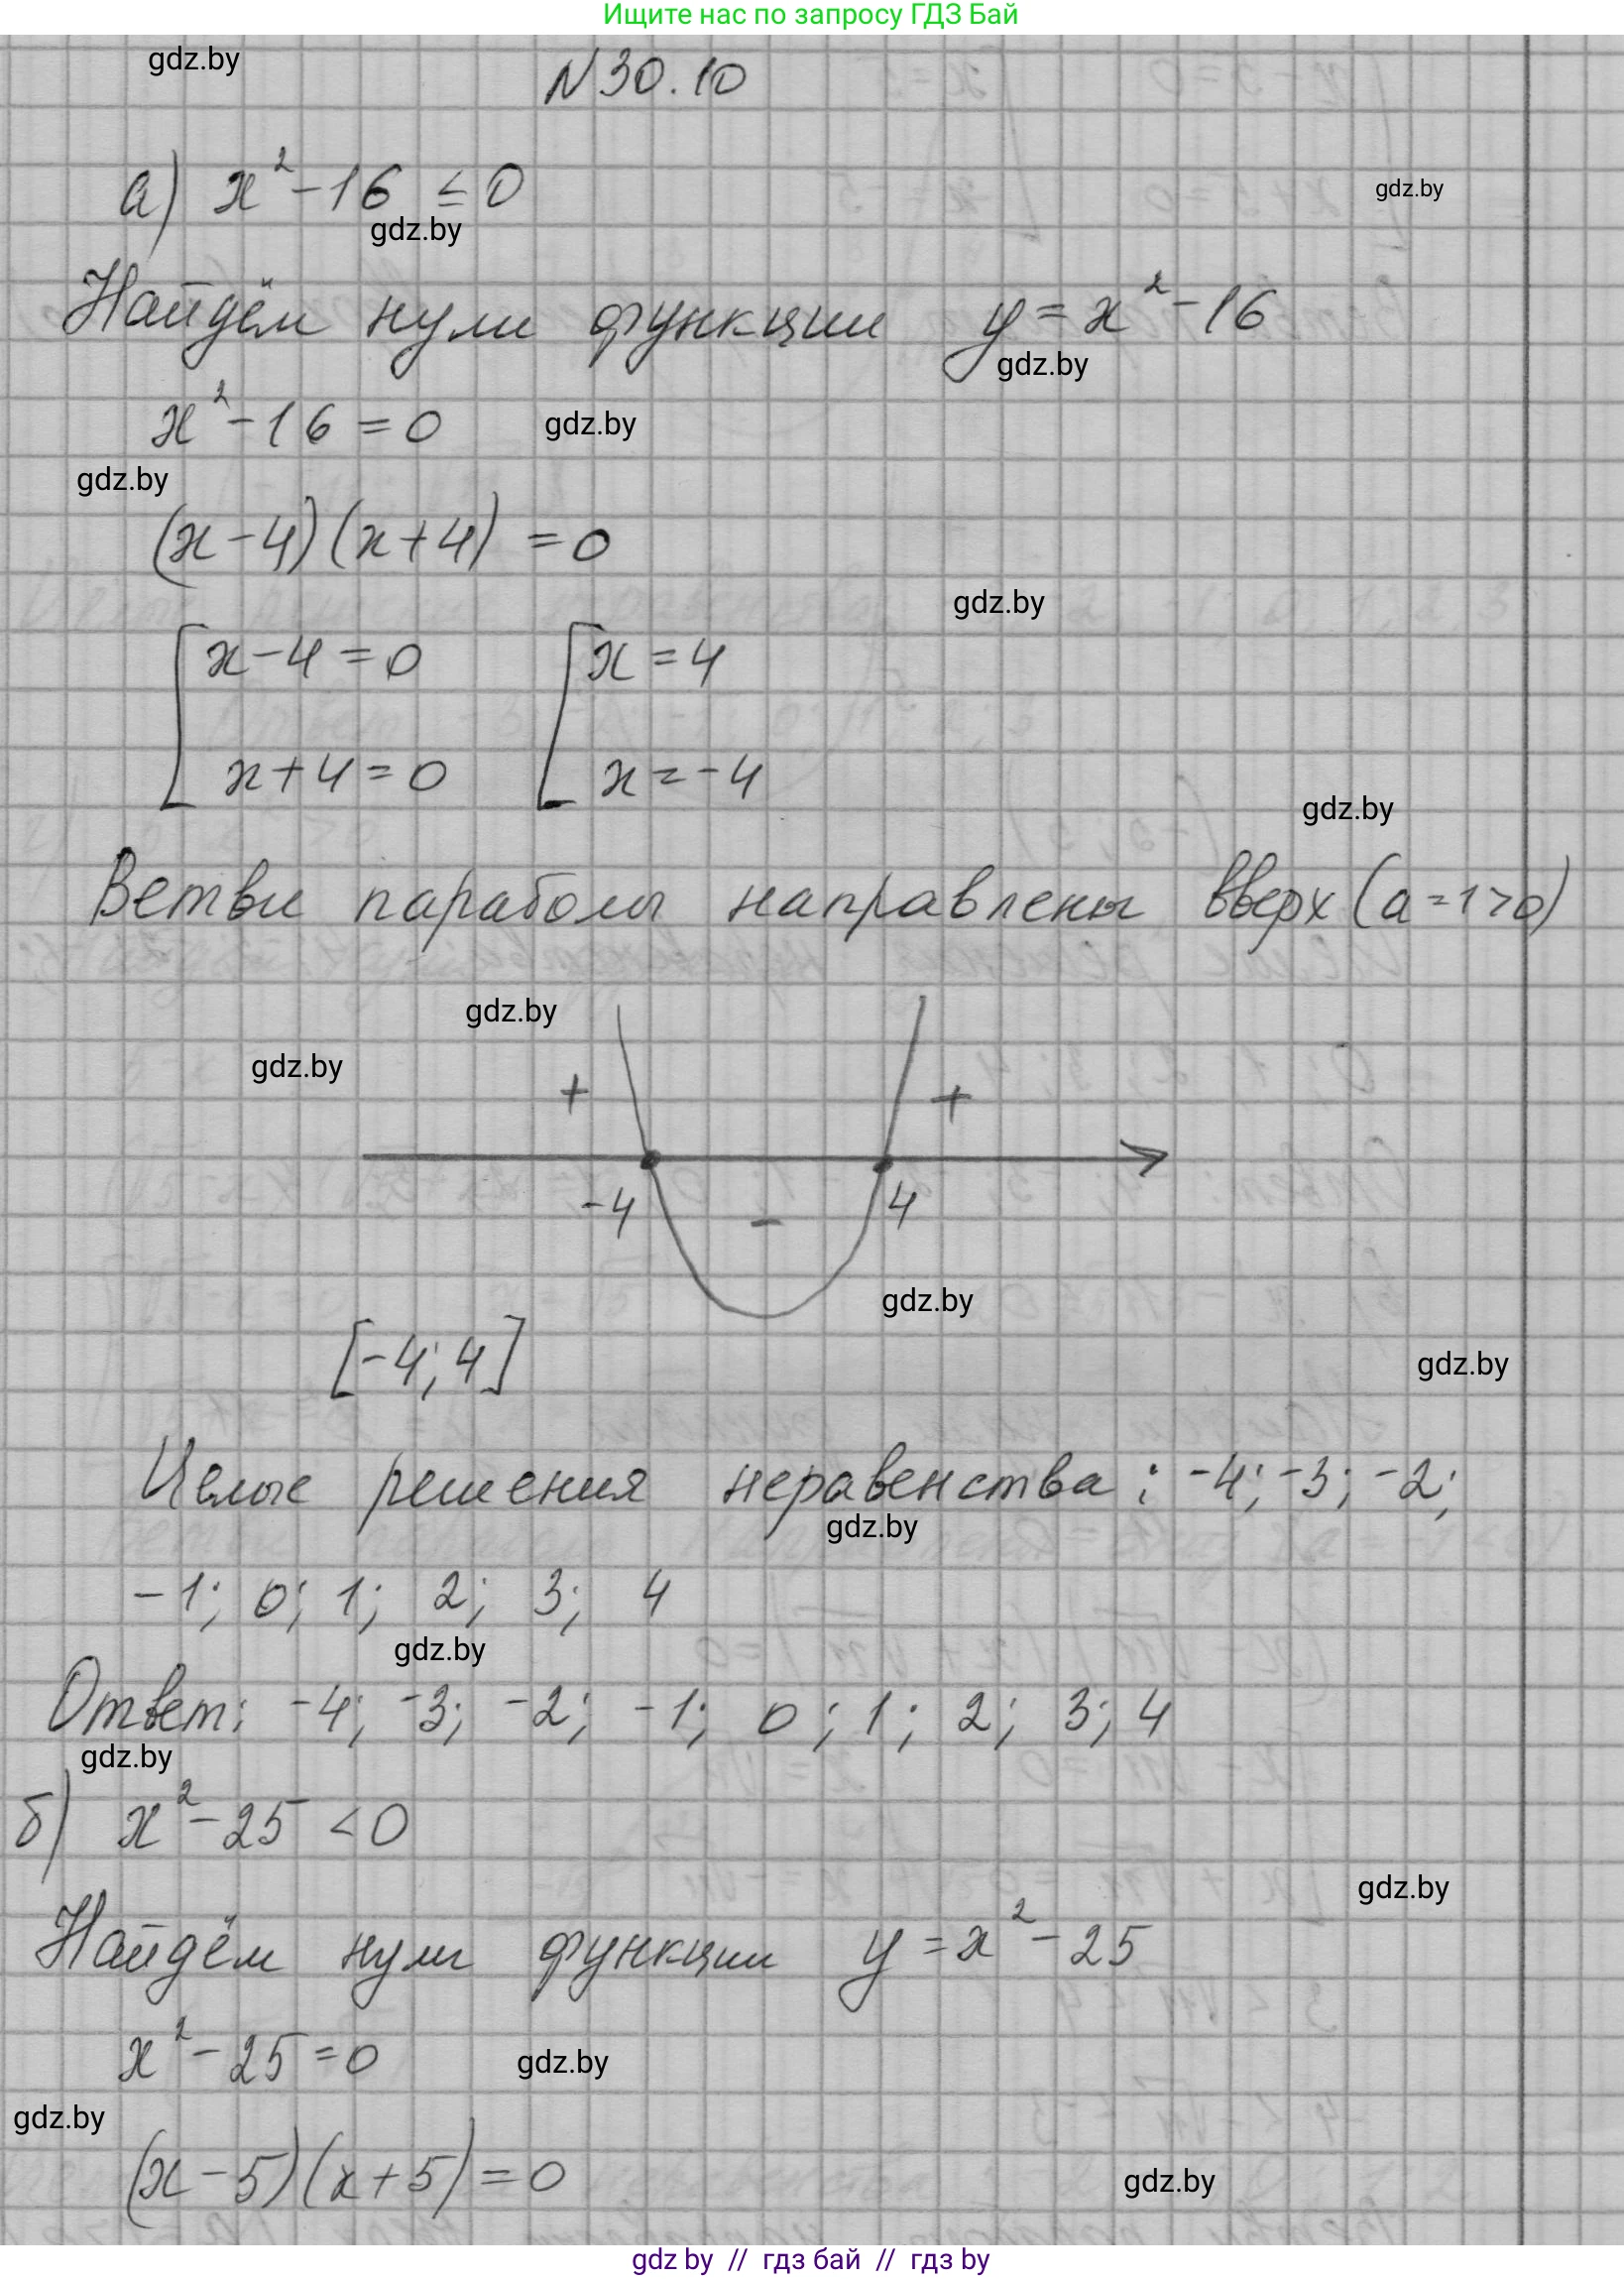 Ищите нас по запросу ГДЗ Бай
gdz.by
N 30.10
а) x² - 16 ≤ 0
gdz.by
gdz.by
Найдём нули функции y = x² - 16
gdz.by
x² - 16 = 0
gdz.by
gdz.by
(x - 4)(x + 4) = 0
gdz.by
x - 4 = 0 x = 4
x + 4 = 0 x = -4
gdz.by
Ветви параболы направлены вверх (a = 1 > 0)
gdz.by
gdz.by
+ +
-4 - 4
gdz.by
[-4; 4]
gdz.by
Целые решения неравенства: -4; -3; -2;
gdz.by
-1; 0; 1; 2; 3; 4
gdz.by
Ответ: -4; -3; -2; -1; 0; 1; 2; 3; 4
gdz.by
б) x² - 25 < 0
gdz.by
Найдём нули функции y = x² - 25
x² - 25 = 0
gdz.by
gdz.by
(x - 5)(x + 5) = 0
gdz.by
gdz by // гдз бай // гдз by